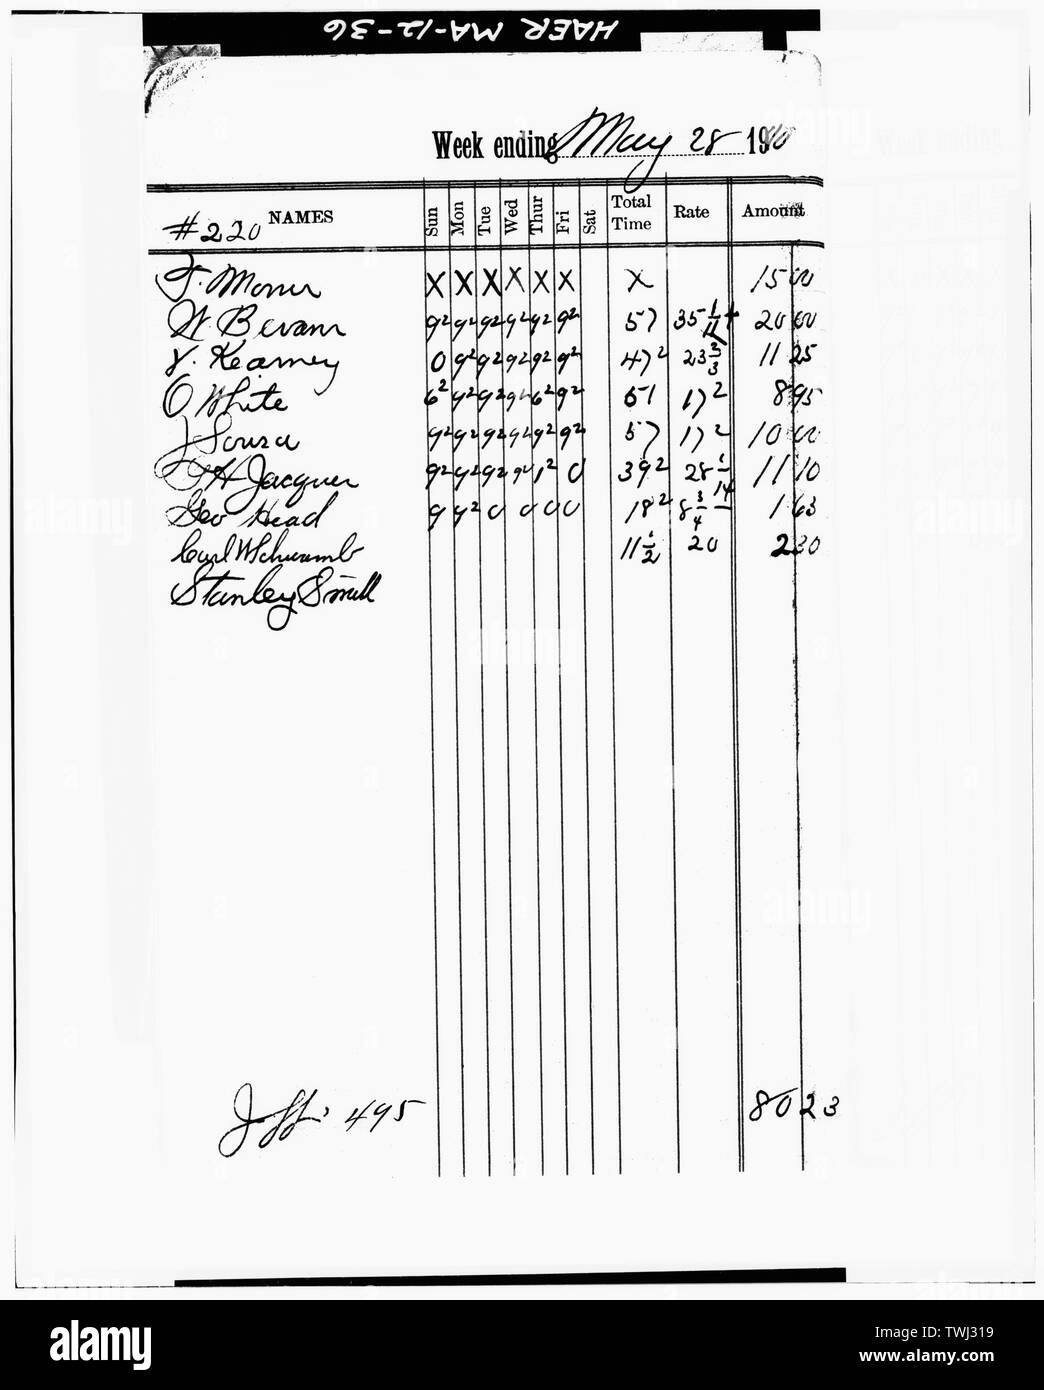 HAER MA-12-36
Week ending May 28 1910
#220 NAMES Sun Mon Tue Wed Thur Fri Sat Total Time Rate Amount
X X X X X X X 15 00
W. Bevans 9² 9² 9² 9² 9² 9² 57 35 1/11 + 20 00
J. Kearney 0 9² 9² 9² 9² 9² 47² 23 2/3 11 25
O White 6² 9² 9² 9² 6² 9² 51 17² 8 95
J Souza 9² 9² 9² 9² 9² 9² 57 17² 10 00
H Jacquer 9² 9² 9² 9² 1² 0 39² 28 1/14 11 10
Geo Head 9 9² 0 0 0 0 18² 8 3/4 1 63
Carl W Schwamb 11 1/2 20 2 30
Stanley Small
495 80 23
alamy
Image ID: TWJ319
www.alamy.com